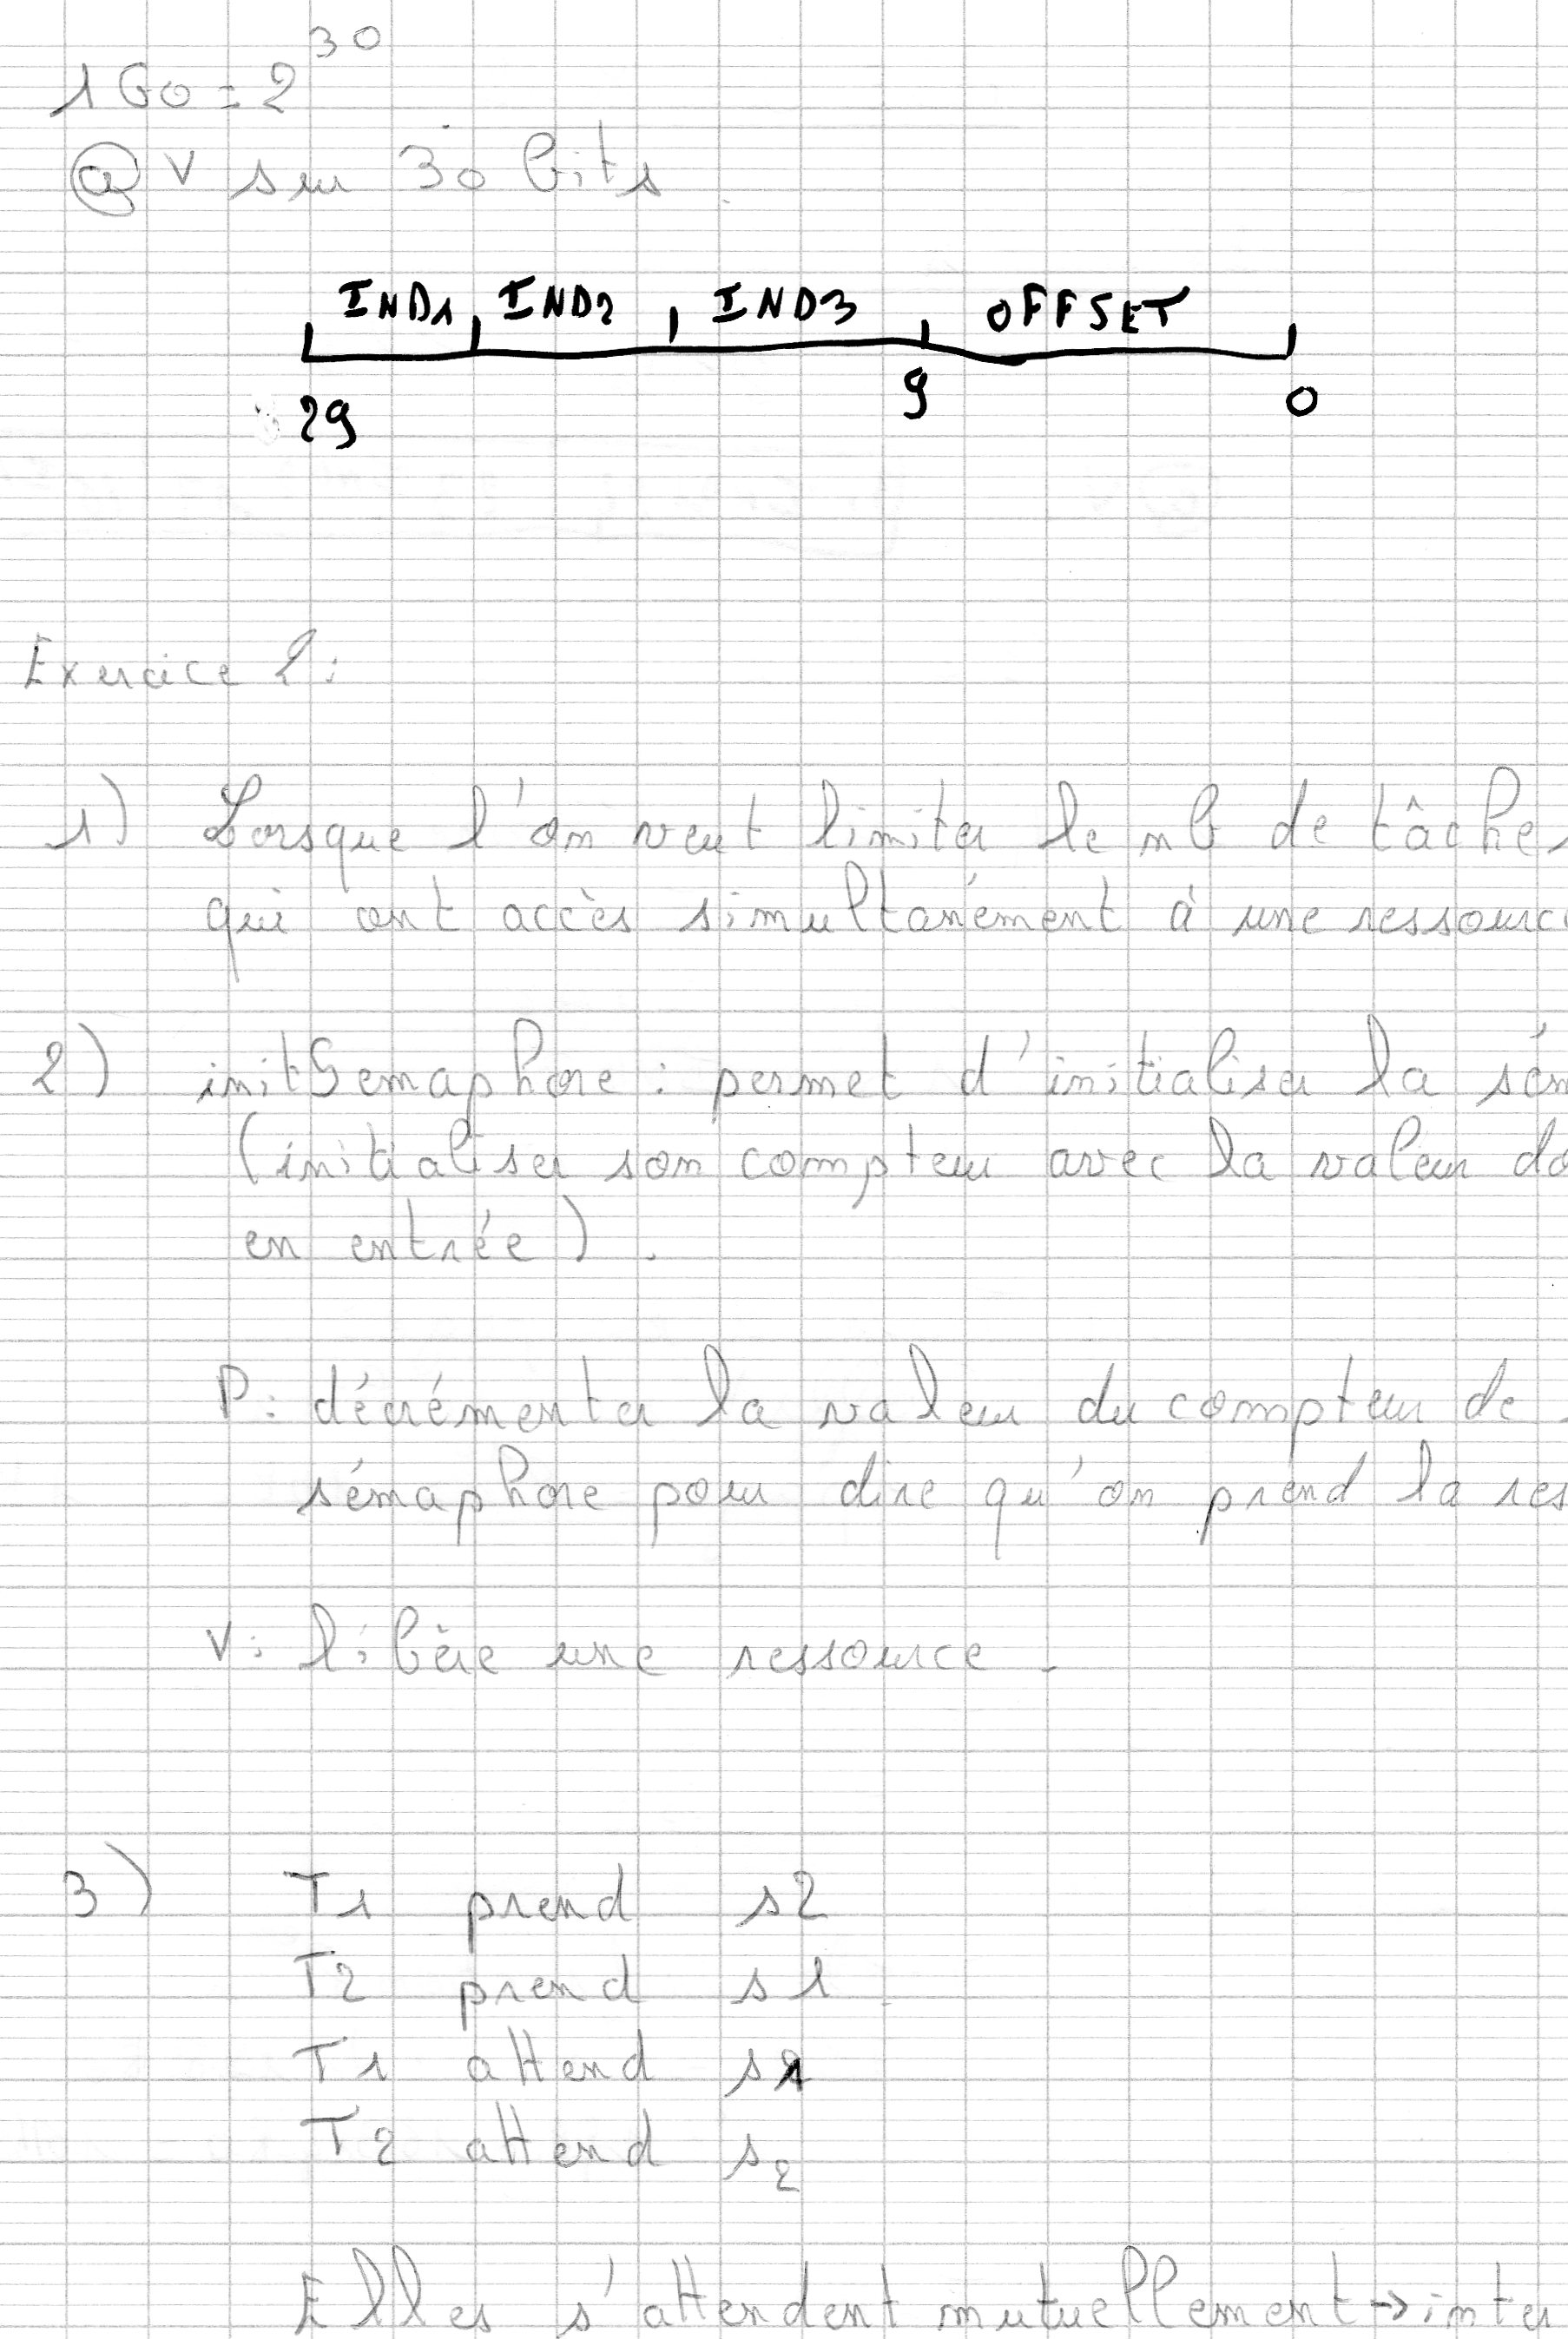 1 Go = 2^30
@ V sur 30 bits.
IND1 IND2 IND3 OFFSET
29 9 0
Exercice 2 :
1) Lorsque l'on veut limiter le nb de tâches
qui ont accès simultanément à une ressource
2) initSemaphore : permet d'initialiser la sém
(initialiser son compteur avec la valeur do
en entrée).
P : décrémenter la valeur du compteur de
sémaphore pour dire qu'on prend la res
V : libère une ressource.
3) T1 prend s2
T2 prend s1
T1 attend s1
T2 attend s2
Elles s'attendent mutuellement → inter